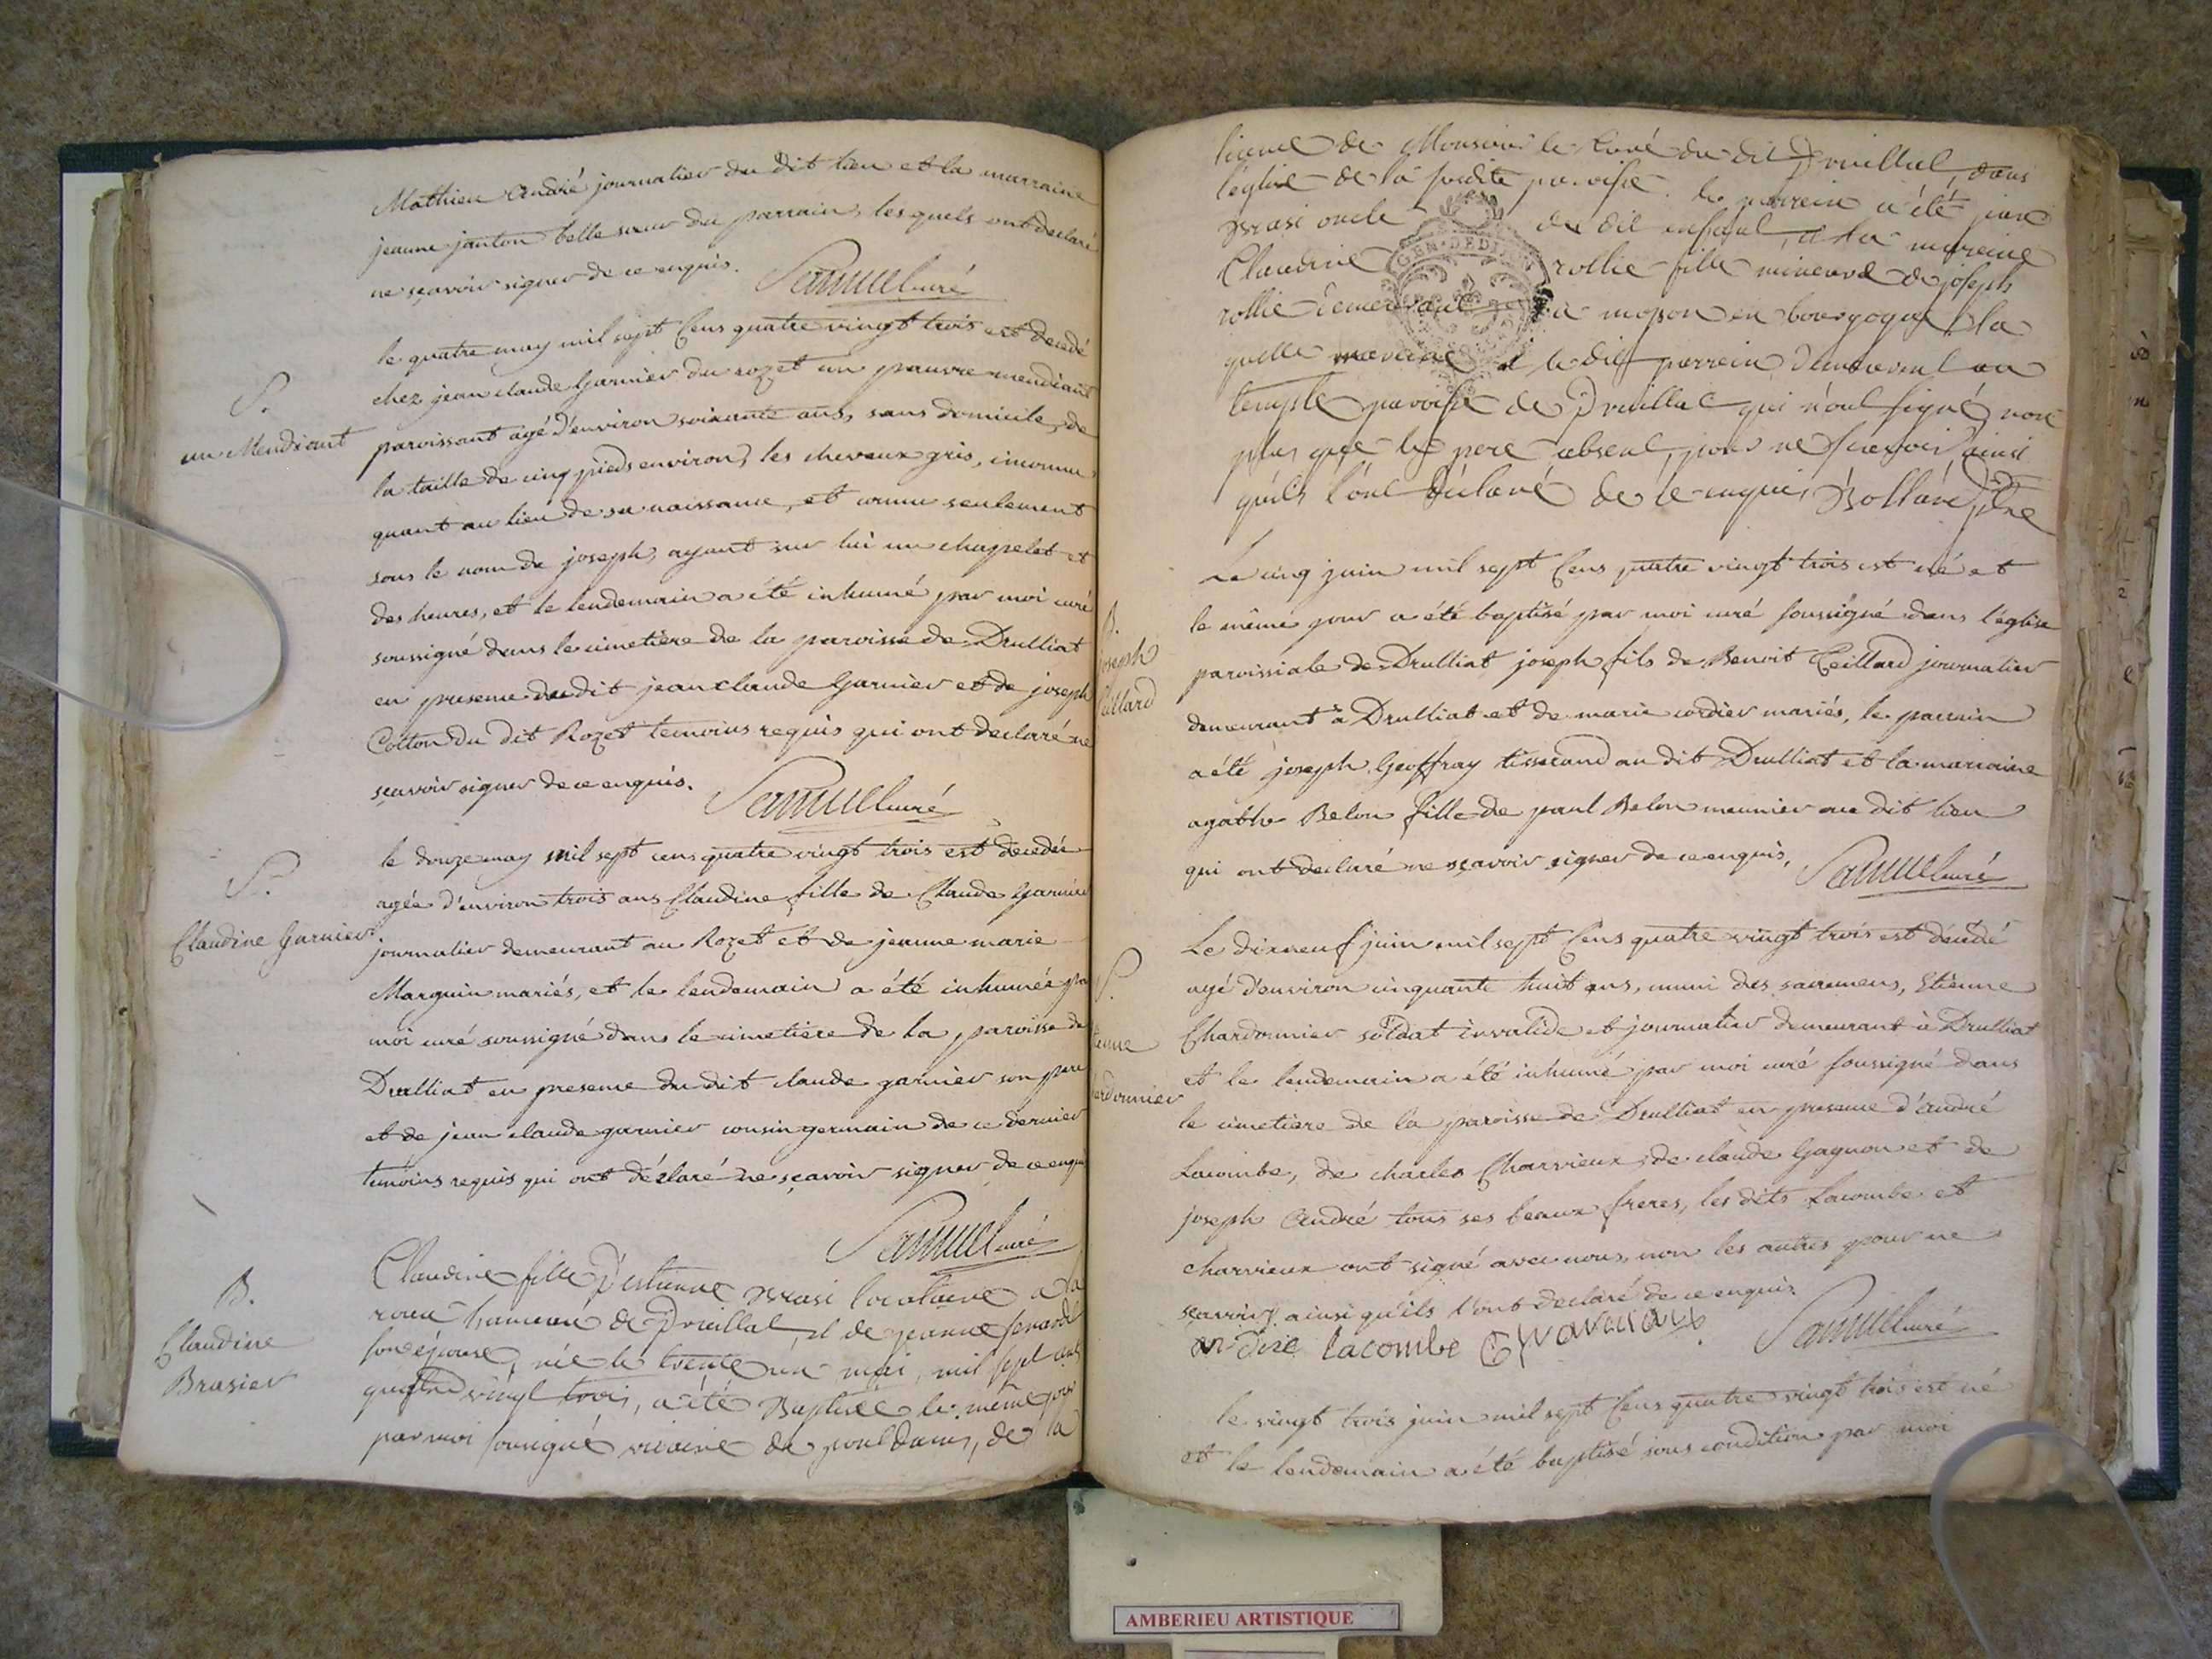 Mathieu andré journalier du dit lieu et la marraine
jeanne janton belle sœur du parrain, lesquels ont declaré
ne sçavoir signer de ce enquis. Samuel curé
S.
un Mendiant
le quatre may mil sept cens quatre vingt trois est decedé
chez jean claude Garnier du rozet un pauvre mendiant
paroissant agé d'environ soixante ans, sans domicile, de
la taille de cinq pieds environ, les cheveux gris, inconnu
quant au lieu de sa naissance, et connu seulement
sous le nom de joseph, ayant sur lui un chapelet et
des heures, et le lendemain a été inhumé par moi curé
soussigné dans le cimetière de la paroisse de Drulliat
en presence du dit jean claude Garnier et de joseph
Cotton du dit Rozet temoins requis qui ont declaré ne
sçavoir signer de ce enquis. Samuel curé
S.
Claudine Garnier
le douze may mil sept cens quatre vingt trois est decedée
agée d'environ trois ans Claudine fille de Claude Garnier
journalier demeurant au Rozet et de jeanne marie
Marguin mariés, et le lendemain a été inhumée par
moi curé soussigné dans le cimetiere de la paroisse de
Drulliat en presence du dit claude garnier son pere
et de jean claude garnier cousin germain de ce dernier
temoins requis qui ont déclaré ne sçavoir signer de ce enquis
Samuel curé
B.
Claudine
Brasier
Claudine fille d'estienne locataire a la
hameau de Druillat, et de jeanne
son épouse, née le trente un mai, mil sept cents
quatre vingt trois, a été Baptisée le même jour
par moi soussigné vicaire de pont dains, de la
licence de Monsieur le Curé du dit Druillat, dans
l'église de la susdite paroisse. le parrein a été jean
oncle du dit enfant, et la mareine
Claudine rollie fille mineure de joseph
rollie demeurant a en bourgogne la
quelle mareine et le dit parrein demeurent au
temple paroisse de Druillat qui n'ont signé non
plus que le pere absent, pour ne sçavoir ainsi
qu'ils l'ont déclaré de ce enquis
B.
joseph
Ceillard
Le cinq juin mil sept cens quatre vingt trois est né et
le même jour a été baptisé par moi curé soussigné dans l'église
paroissiale de Drulliat joseph fils de Benoit Ceillard journalier
demeurant à Drulliat et de marie cordier mariés, le parrain
a été joseph Geoffray tisserand au dit Drulliat et la marraine
agathe Belon fille de paul Belon meunier au dit lieu
qui ont declaré ne sçavoir signer de ce enquis, Samuel curé
S.
tienne
ardonnier
Le dix neuf juin mil sept cens quatre vingt trois est décédé
agé d'environ cinquante huit ans, muni des sacremens, Etienne
Chardonnier soldat invalide et journalier demeurant à Drulliat
et le lendemain a été inhumé par moi curé soussigné dans
le cimetiere de la paroisse de Drulliat en presence d'andré
Lacombe, de charles Charvieux, de claude Gagnon et de
joseph André tous ses beaux freres, les dits Lacombe et
charvieux ont signé avec nous, non les autres pour ne
sçavoir ainsi qu'ils l'ont declaré de ce enquis.
andre lacombe Samuel curé
le vingt trois juin mil sept cens quatre vingt trois est né
et le lendemain a été baptisé sous condition par moi
AMBERIEU ARTISTIQUE